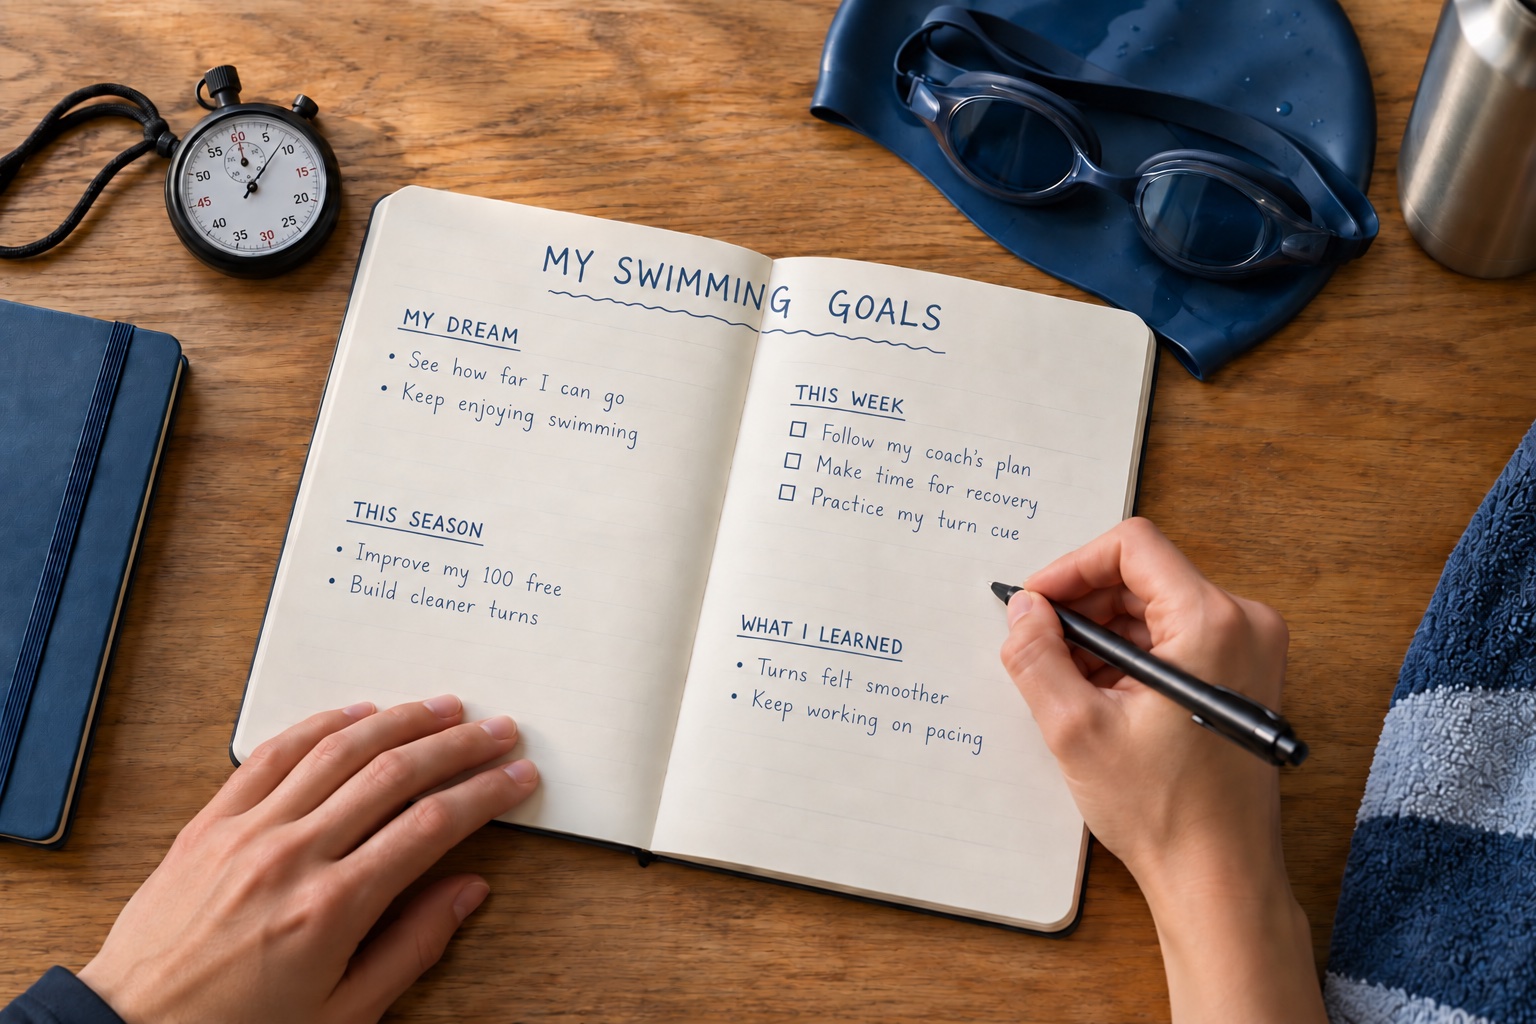 MY SWIMMING GOALS
MY DREAM
• See how far I can go
• Keep enjoying swimming
THIS SEASON
• Improve my 100 free
• Build cleaner turns
THIS WEEK
☐ Follow my coach's plan
☐ Make time for recovery
☐ Practice my turn cue
WHAT I LEARNED
• Turns felt smoother
• Keep working on pacing
60
5
10
15
20
25
30
35
40
45
50
55